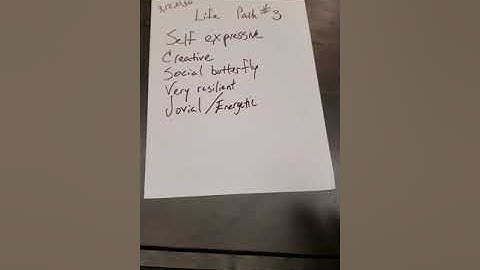 Life Path #3
Self expressive
Creative
Social butterfly
Very resilient
Jovial/Energetic